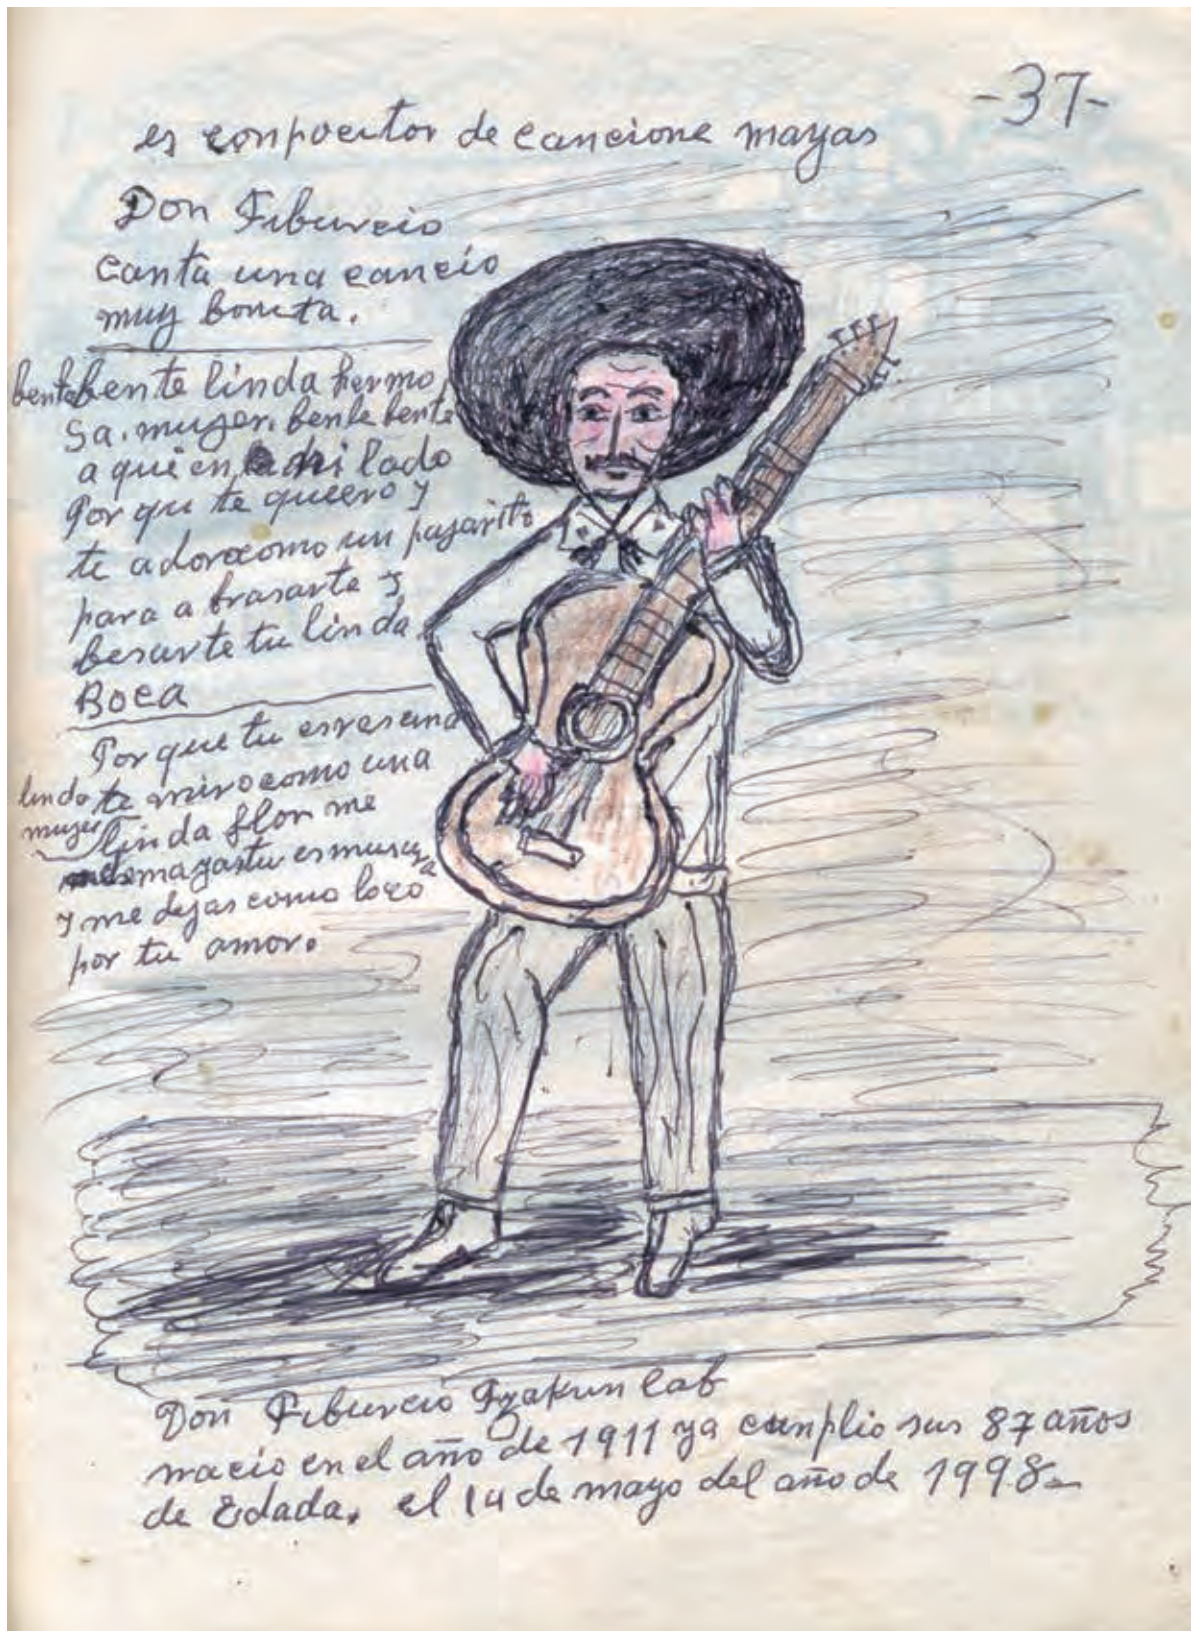 -37-
es conpocitor de cancione mayas
Don Tiburcio
canta una cancio
muy bonita.
bente bente linda hermo
sa. mujer. bente bente
a qui en mi lado
Por qu te queero y
te adoro como un pajarito
para a brasarte y
besarte tu linda
Boca
Por que tu eres una
linda mujer te miro como una
linda flor me
tu es musica
y me dejas como loco
por tu amor.
Don Tiburcio Tzakum cab
nacio en el año de 1911 ya cunplio sus 87 años
de Edada. el 14 de mayo del año de 1998-